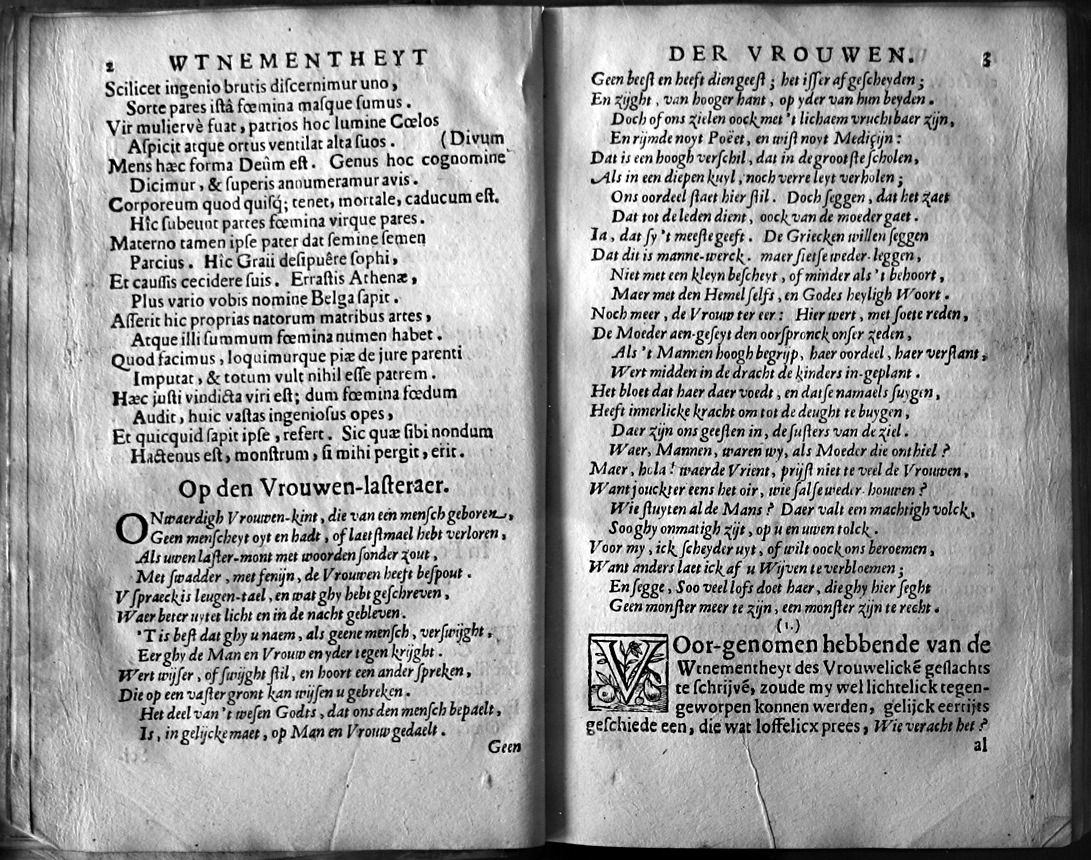 2 WTNEMENTHEYT
Scilicet ingenio brutis diſcernimur uno,
Sorte pares iſtâ fœmina maſque ſumus.
Vir muliervè fuat, patrios hoc lumine Cœlos
Aſpicit atque ortus ventilat alta ſuos. (Divum
Mens hæc forma Deûm eſt. Genus hoc cognomine
Dicimur, & ſuperis annumeramur avis.
Corporeum quod quiſq; tenet, mortale, caducum eſt.
Hîc ſubeunt partes fœmina virque pares.
Materno tamen ipſe pater dat ſemine ſemen
Parcius. Hîc Graii deſipuêre ſophi,
Et cauſſis cecidere ſuis. Erraſtis Athenæ,
Plus vario vobis nomine Belga ſapit.
Aſſerit hic proprias natorum matribus artes,
Atque illi ſummum fœmina numen habet.
Quod facimus, loquimurque piæ de jure parenti
Imputat, & totum vult nihil eſſe patrem.
Hæc juſti vindicta viri eſt; dum fœmina fœdum
Audit, huic vaſtas ingenioſus opes,
Et quicquid ſapit ipſe, refert. Sic quæ ſibi nondum
Hactenus eſt, monſtrum, ſi mihi pergit, erit.
Op den Vrouwen-laſteraer.
ONwaerdigh Vrouwen-kint, die van een menſch geboren,
Geen menſcheyt oyt en hadt, of laetſtmael hebt verloren,
Als uwen laſter-mont met woorden ſonder zout,
Met ſwadder, met fenijn, de Vrouwen heeft beſpout.
V ſpraeck is leugen-tael, en wat ghy hebt geſchreven,
Waer beter uytet licht en in de nacht gebleven.
'T is beſt dat ghy u naem, als geene menſch, verſwijght,
Eer ghy de Man en Vrouw en yder tegen krijght.
Wert wijſer, of ſwijght ſtil, en hoort een ander ſpreken,
Die op een vaſter gront kan wijſen u gebreken.
Het deel van't weſen Godts, dat ons den menſch bepaelt,
Is, in gelijcke maet, op Man en Vrouw gedaelt.
Geen
DER VROUWEN. 3
Geen beeſt en heeft dien geeſt; het iſſer af geſcheyden;
En zijght, van hooger hant, op yder van hun beyden.
Doch of ons zielen oock met 't lichaem vruchtbaer zijn,
En rijmde noyt Poëet, en wiſt noyt Medicijn:
Dat is een hoogh verſchil, dat in de grootſte ſcholen,
Als in een diepen kuyl, noch verre leyt verholen;
Ons oordeel ſtaet hier ſtil. Doch ſeggen, dat het zaet
Dat tot de leden dient, oock van de moeder gaet.
Ia, dat ſy 't meeſte geeft. De Griecken willen ſeggen
Dat dit is manne-werck. maer ſietſe weder-leggen,
Niet met een kleyn beſcheyt, of minder als 't behoort,
Maer met den Hemel ſelfs, en Godes heyligh Woort.
Noch meer, de Vrouw ter eer: Hier wert, met ſoete reden,
De Moeder aen-geſeyt den oorſpronck onſer zeden,
Als 't Mannen hoogh begrijp, haer oordeel, haer verſtant,
Wert midden in de dracht de kinders in-geplant.
Het bloet dat haer daer voedt, en datſe namaels ſuygen,
Heeft innerlicke kracht om tot de deught te buygen,
Daer zijn ons geeſten in, de ſuſters van de ziel.
Waer, Mannen, waren wy, als Moeder die onthiel?
Maer, hola! waerde Vrient, prijſt niet te veel de Vrouwen,
Want jouckter eens het oir, wie ſalſe weder-houwen?
Wie ſluyten al de Mans? Daer valt een machtigh volck,
Soo ghy onmatigh zijt, op u en uwen tolck.
Voor my, ick ſcheyder uyt, of wilt oock ons beroemen,
Want anders laet ick af u Wijven te verbloemen;
En ſegge, Soo veel lofs doet haer, die ghy hier ſeght
Geen monſter meer te zijn, een monſter zijn te recht.
(1.)
VOor-genomen hebbende van de
Wtnementheyt des Vrouwelickē geſlachts
te ſchrijvē, zoude my wel lichtelick tegen-
geworpen konnen werden, gelijck eertijts
geſchiede een, die wat loffelicx prees, Wie veracht het?
al